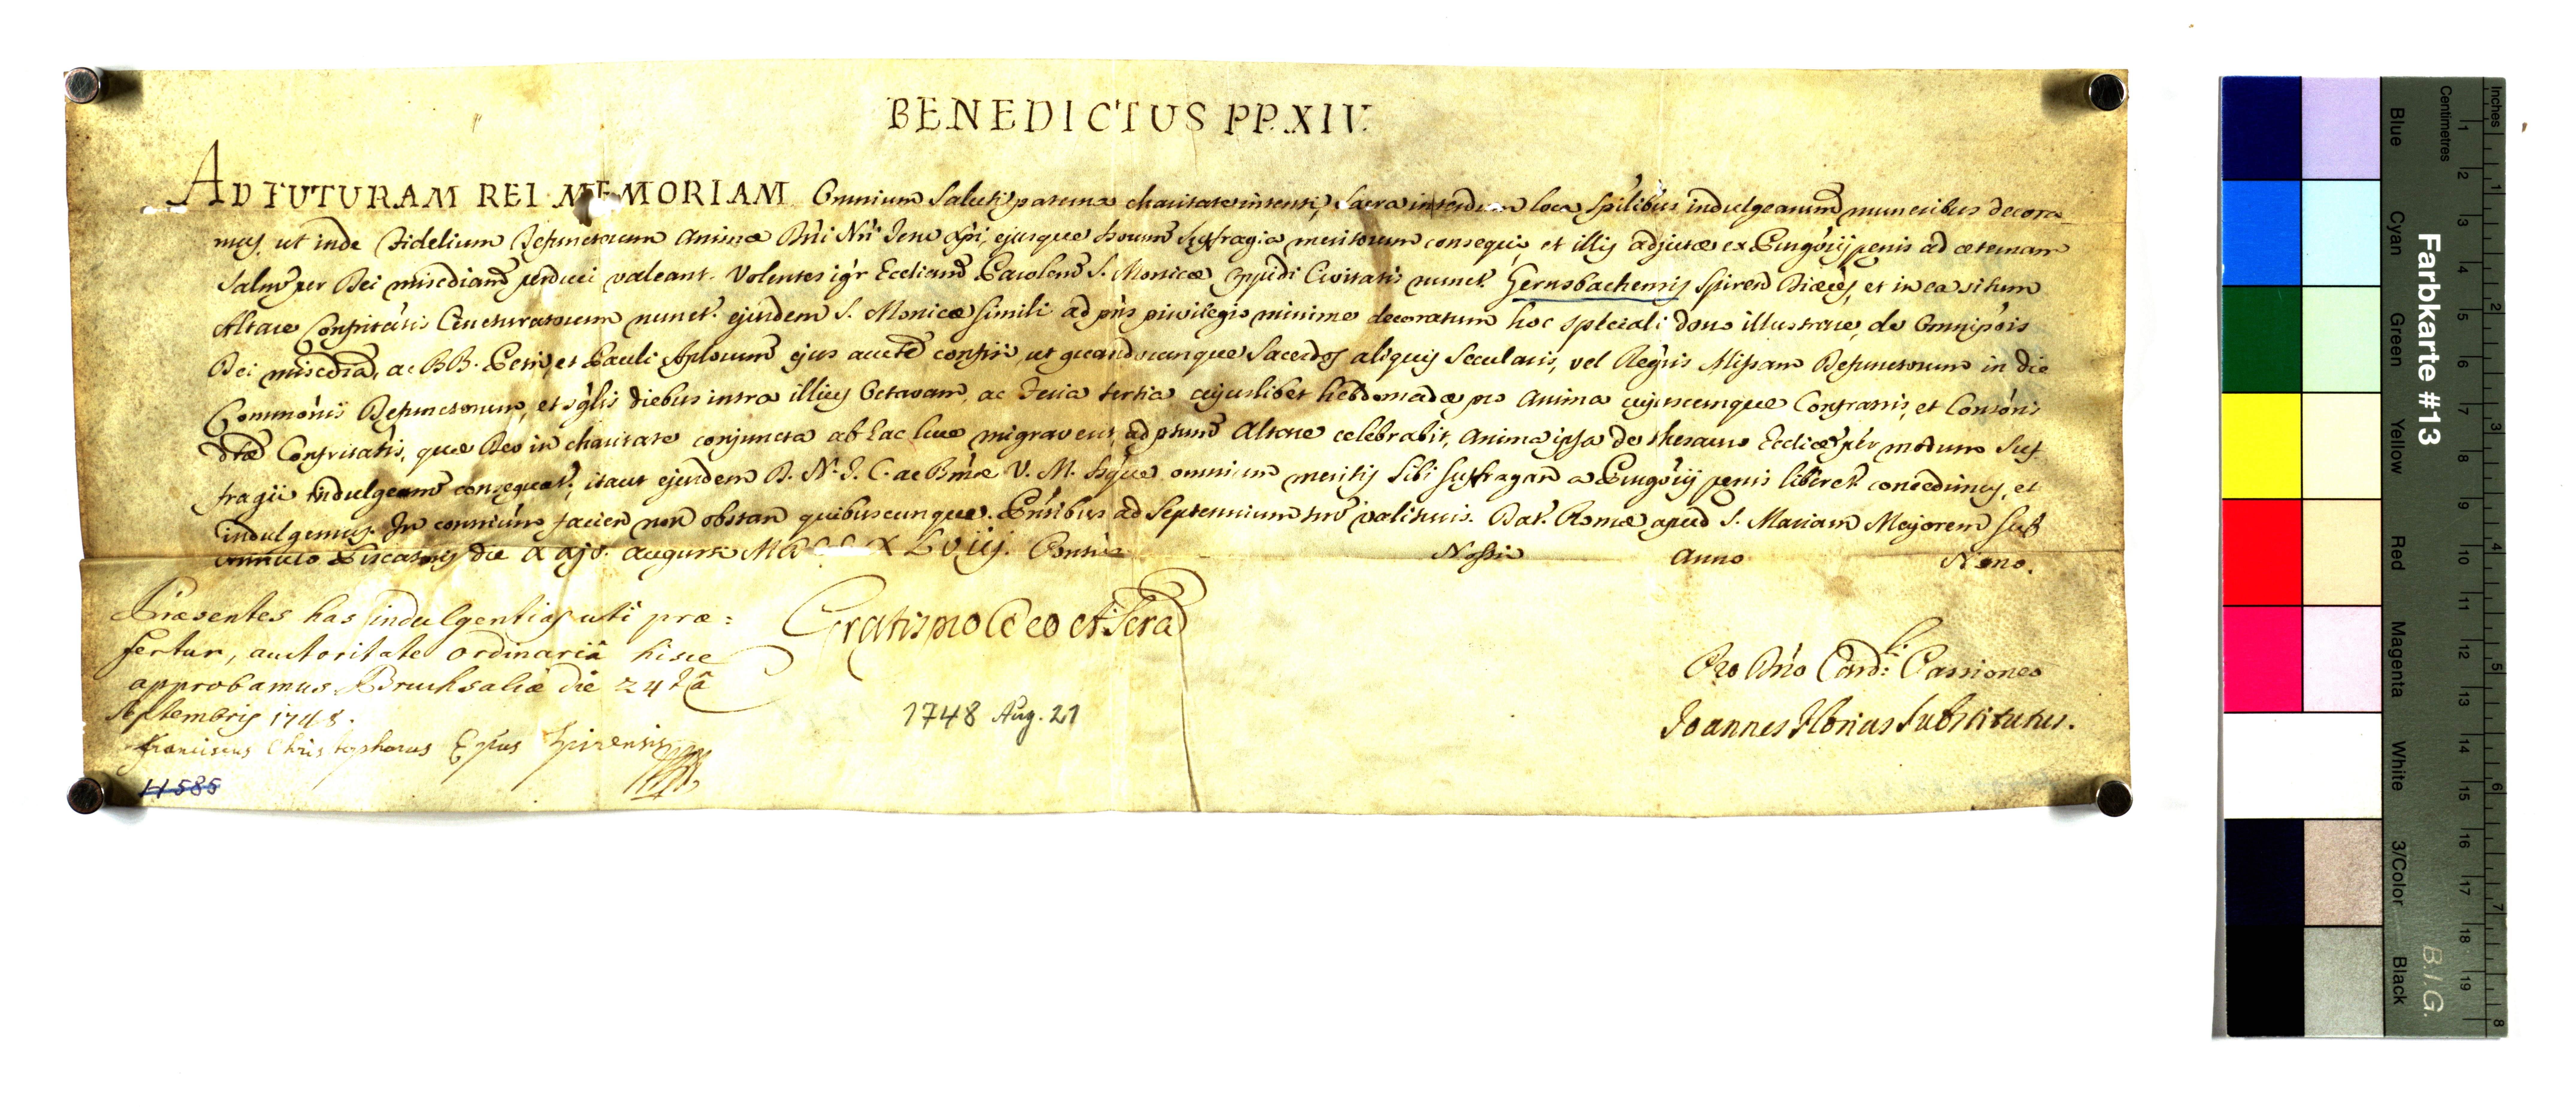 BENEDICTUS PP. XIV.
AD FUTURAM REI MEMORIAM Omnium Saluti paterna charitate intenti, Sacra interdum loca Spilibus indulgearum muneribus decora
mus, ut inde Fidelium Defunctorum Animæ Dni Nri Jesu Xpi, ejusque Sorum suffragia meritorum consequi, et illis adjutæ ex Purgorij penis ad æternam
Salum per Dei misediam perduci valeant. Volentes igr Eccliam Parolem S. Monicæ Civitatis nunct. Gernsbachensis Spiren Diæcs, et in ea situm
Altare Confritatis Cincturatorum nunct. ejusdem S. Monicæ simili ad pns privilegio minime decoratum hoc speciali dono illustrare, de Omnipois
Dei misedia, ac BB. Petri, et Pauli Aplorum ejus aucte confisi, ut quandocunque Sacerdos aliquis Secularis, vel Regris Missam Defunctorum in die
Commonis Defunctorum, et sglis diebus intra illius Octavam, ac Feria tertia cujuslibet hebdomadæ pro Anima cujuscunque Confratris, et Consoris
dtæ Confritatis, quæ Deo in charitate conjuncta ab hac luce migraverit, ad pntum Altare celebrabit, Anima ipsa de thesauro Eccliæ per modum suf
fragii Indulgeam consequat, itaut ejusdem D. N. J. C. ac Bmæ V. M. Sque omnium meritis sibi suffragan a Purgorij penis liberet concedimus, et
indulgemus. In contrium facien non obstan quibuscunque. Pntibus ad Septennium tm valituris. Dat. Romæ apud S. Mariam Majorem sub
annulo Piscatoris die XXJ. Augusti MDCCXLVIIJ. Pontus Nostri Anno Nono.
Præsentes has indulgentias uti præ:
fertur, auctoritate ordinariâ hisce
approbamus Bruchsaliæ die 24tâ
Septembris 1748.
Franciscus Christophorus Epus Spirensis
Gratis pro Deo et Scra
1748 Aug. 21
Pro Dno Cardli Passioneo
Joannes Florius Substitutus.
11585
Farbkarte #13
B.I.G.
Inches
Centimetres
1 2 3 4 5 6 7 8
1 2 3 4 5 6 7 8 9 10 11 12 13 14 15 16 17 18 19
Blue
Cyan
Green
Yellow
Red
Magenta
White
3/Color
Black